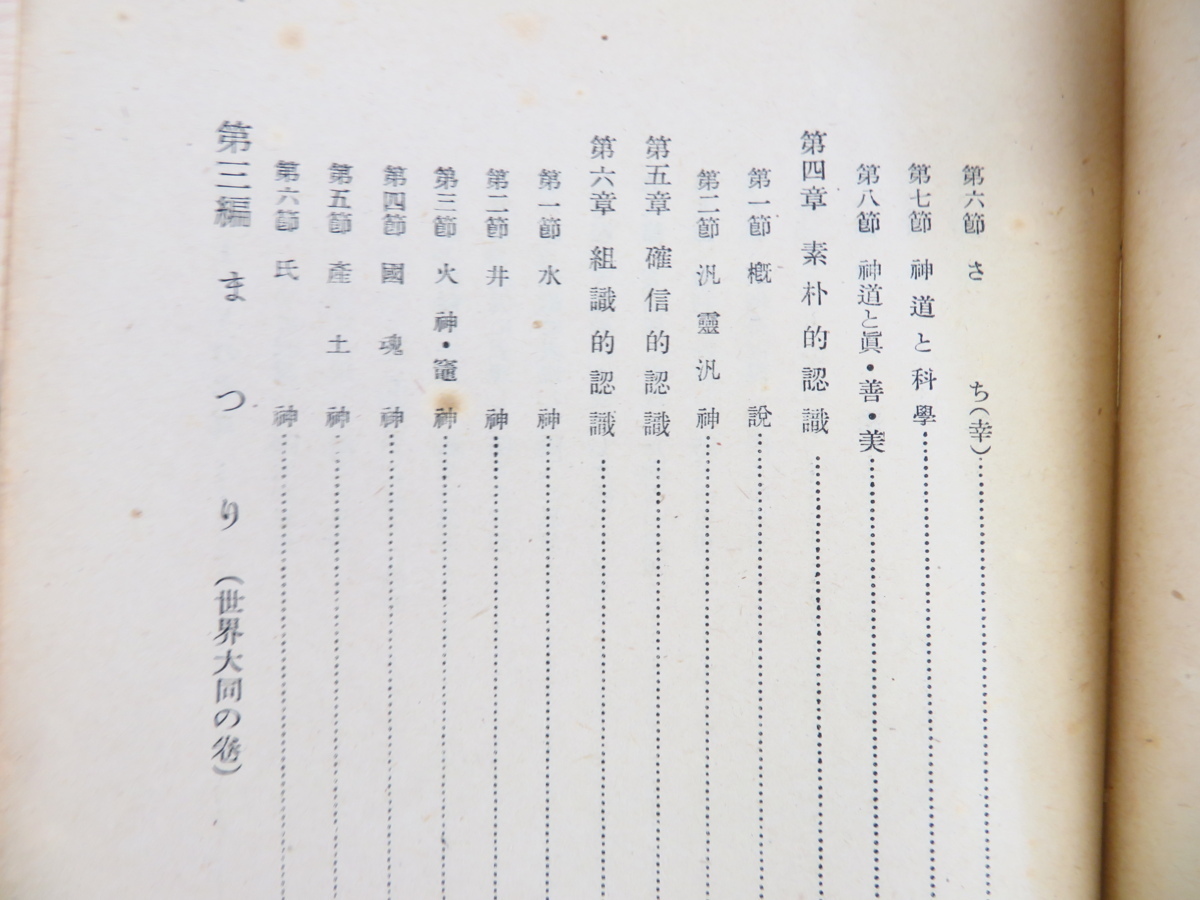 第六節 さち(幸)
第七節 神道と科學
第八節 神道と眞・善・美
第四章 素朴的認識
第一節 槪說
第二節 汎靈汎神
第五章 確信的認識
第六章 組識的認識
第一節 水神
第二節 井神
第三節 火神・竈神
第四節 國魂神
第五節 產土神
第六節 氏神
第三編 まつり (世界大同の卷)